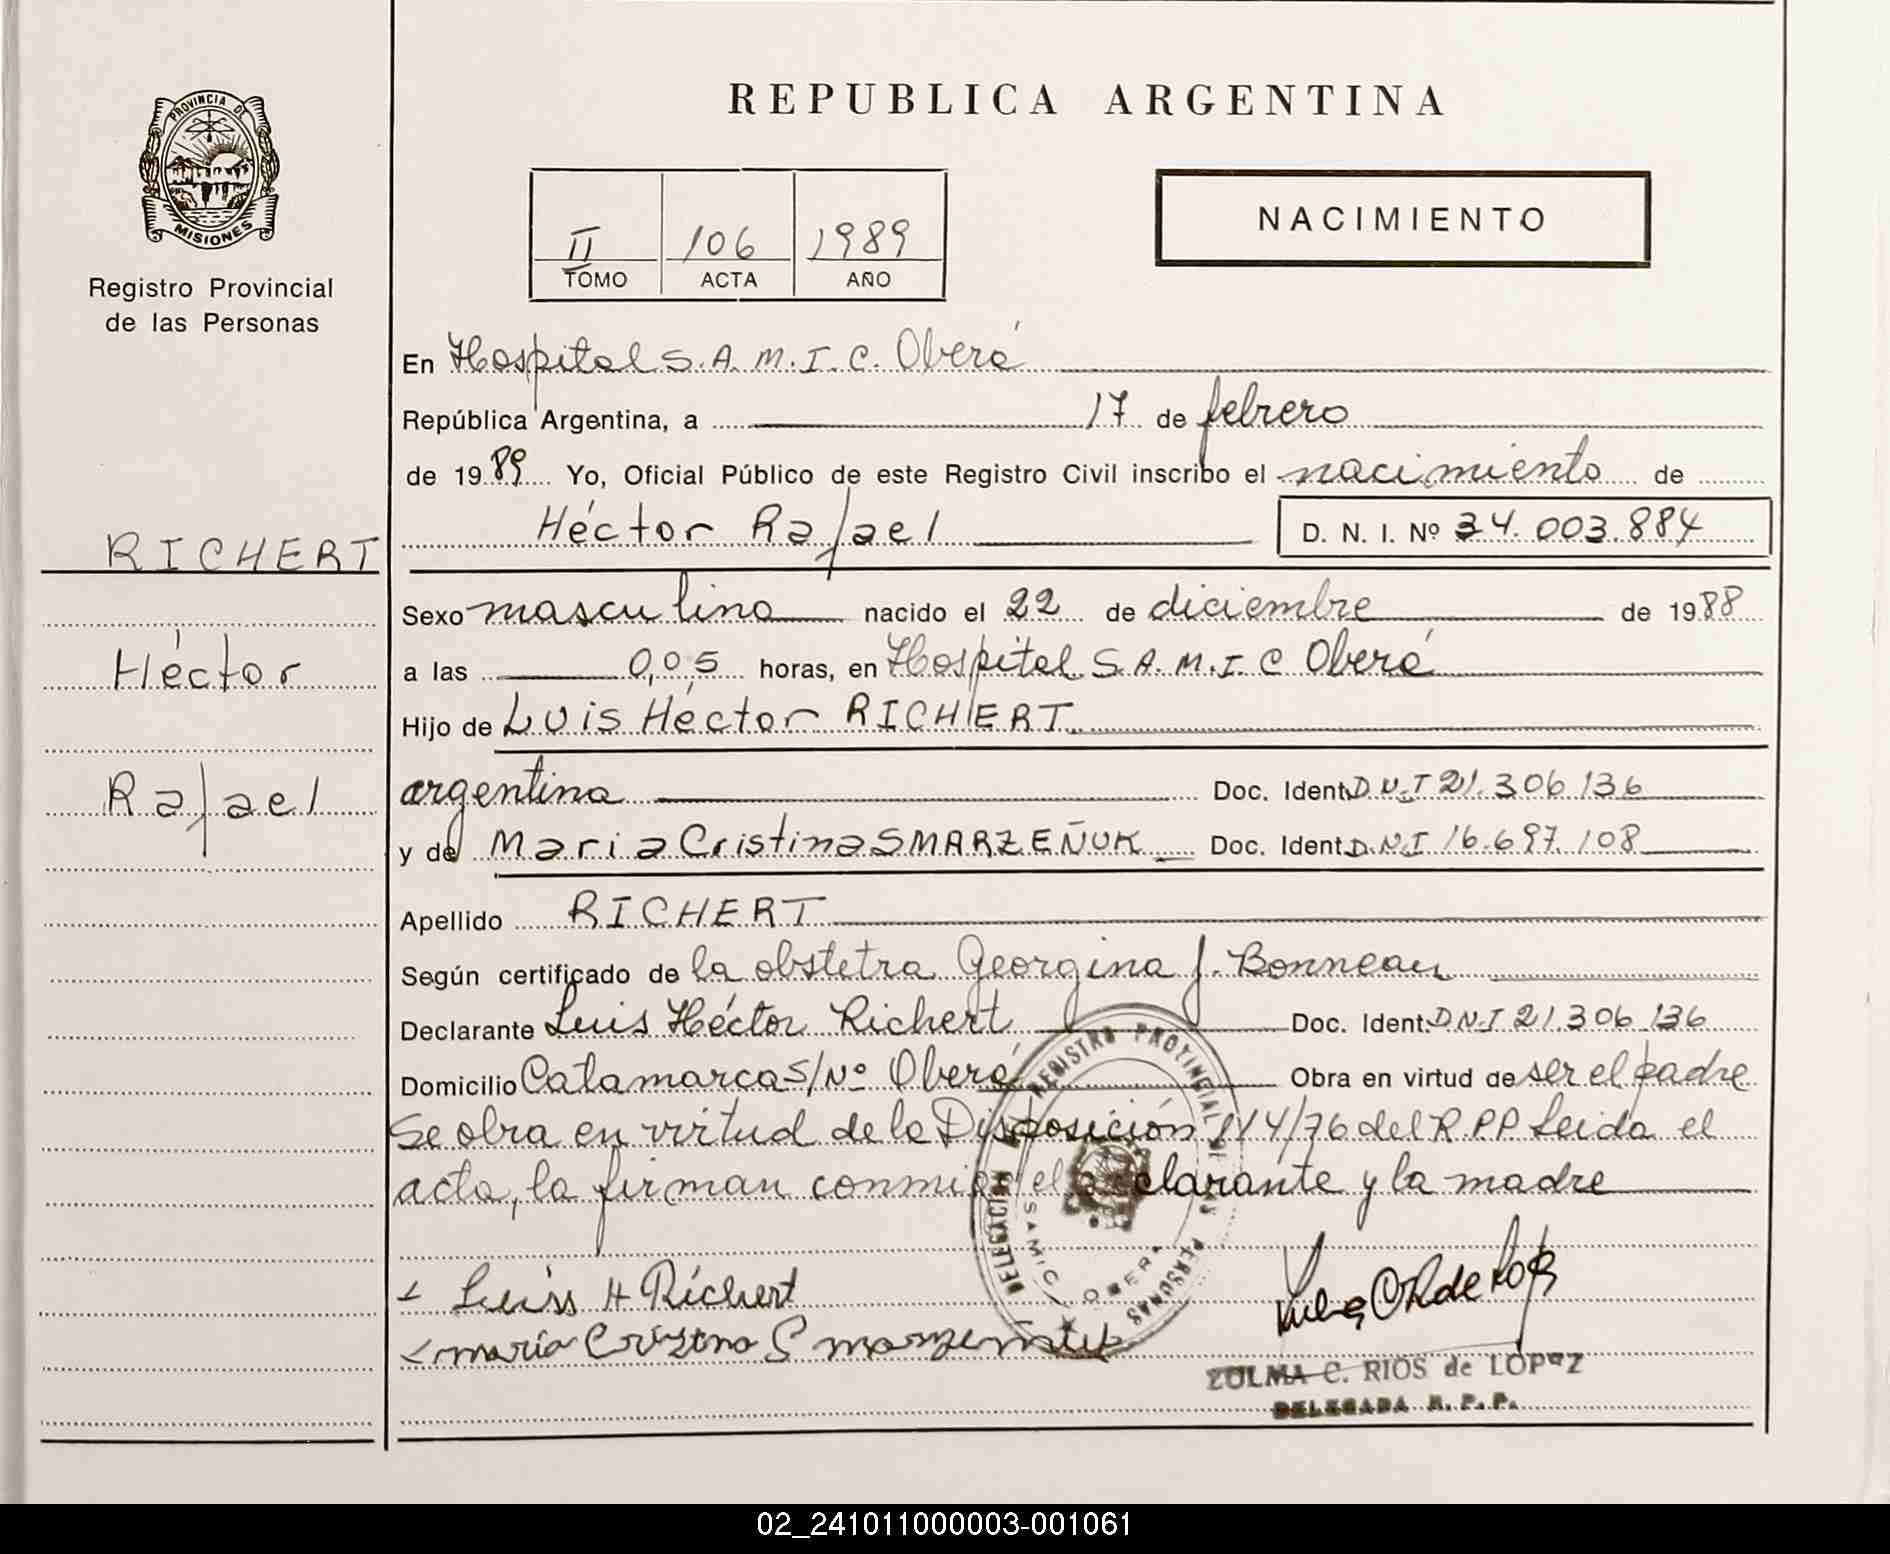 PROVINCIA DE
MISIONES
Registro Provincial
de las Personas
RICHERT
Héctor
Rafael
REPUBLICA ARGENTINA
II 106 1989
TOMO ACTA AÑO
NACIMIENTO
En Hospital S.A.M.I.C. Oberá
República Argentina, a 17 de febrero
de 1989 Yo, Oficial Público de este Registro Civil inscribo el nacimiento de
Héctor Rafael D. N. I. Nº 34.003.884
Sexo masculino nacido el 22 de diciembre de 1988
a las 0,05 horas, en Hospital S.A.M.I.C Oberá
Hijo de Luis Héctor RICHERT
argentina Doc. Ident. D.N.I 21.306.136
y de Maria Cristina SMARZEÑUK Doc. Ident. D.N.I 16.697.108
Apellido RICHERT
Según certificado de la obstetra Georgina J. Bonneau
Declarante Luis Héctor Richert Doc. Ident. D.N.I 21.306.136
Domicilio Catamarca S/Nº Oberá Obra en virtud de ser el padre
Se obra en virtud de la Disposición 114/76 del R.P.P Leida el
acta, la firman conmigo el declarante y la madre
DELEGACIÓN REGISTRO PROVINCIAL DE LAS PERSONAS
SAMIC OBERA
Luis H Richert
maria Cristina Smarzeñuk
ZULMA C. RIOS de LOPEZ
DELEGADA R. P. P.
02_241011000003-001061